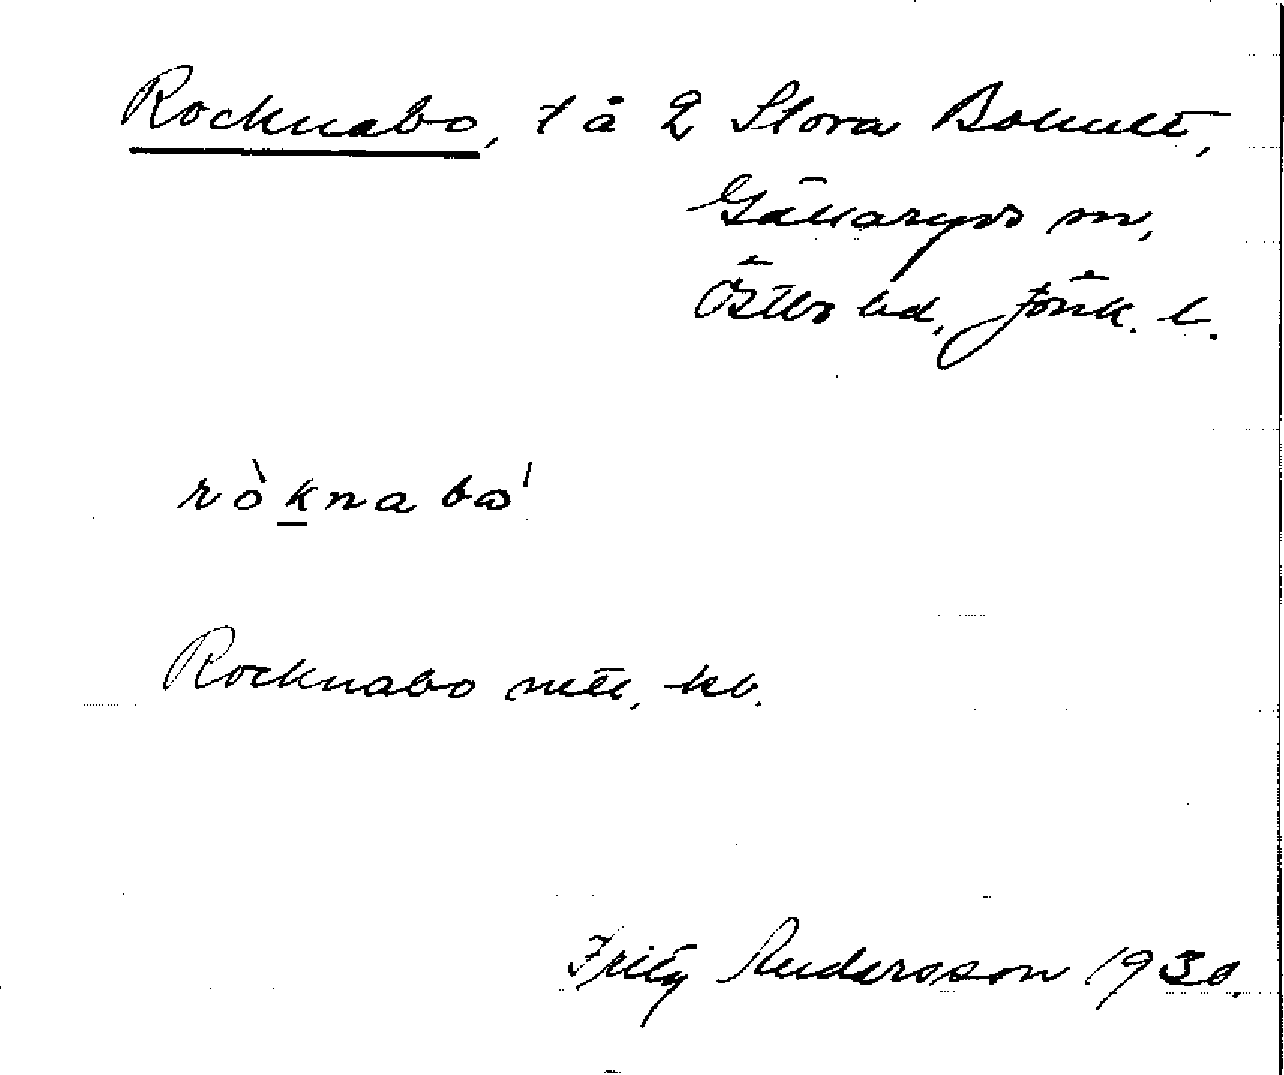 Rocknabo, t å 2 Stora Bohult,
Gällaryds sn,
Östbo hd, Jönk. l.
ròknabo'
Rocknabo mtl, kb.
Fritz Andersson 1930.